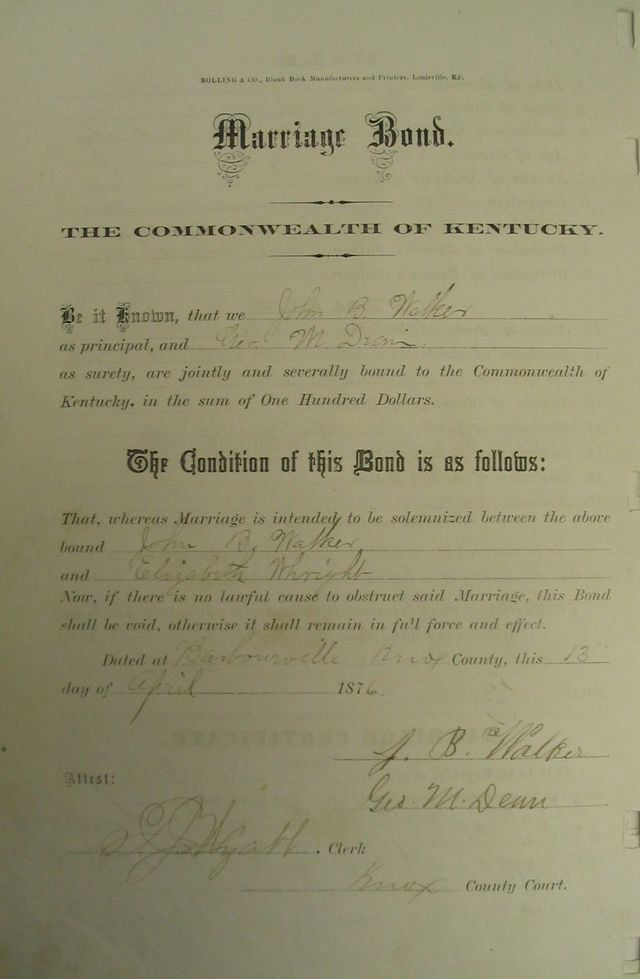 BOLLING & CO., Blank Book Manufacturers and Printers, Louisville, Ky.
Marriage Bond.
THE COMMONWEALTH OF KENTUCKY.
Be it Known, that we John B. Walker
as principal, and Geo. M.
as surety, are jointly and severally bound to the Commonwealth of
Kentucky, in the sum of One Hundred Dollars.
The Condition of this Bond is as follows:
That, whereas Marriage is intended to be solemnized between the above
bound John B. Walker
and Elizabeth Whright
Now, if there is no lawful cause to obstruct said Marriage, this Bond
shall be void, otherwise it shall remain in full force and effect.
Dated at Barbourville Knox County, this 13
day of April 1876
J. B. Walker
Attest:
Geo. M.
Wyatt, Clerk
Knox County Court.